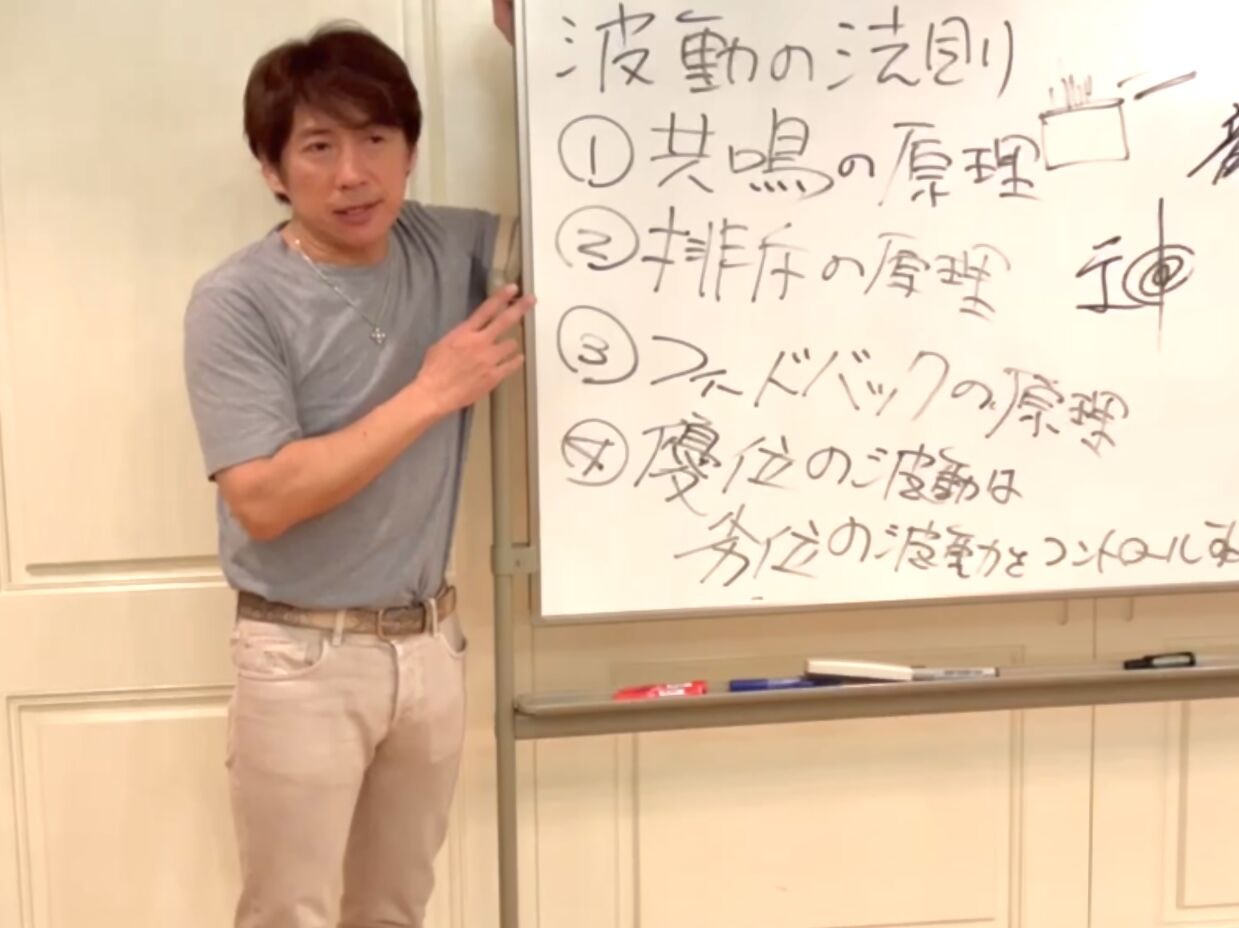 波動の法則
① 共鳴の原理
② 排斥の原理
③ フィードバックの原理
④ 優位の波動は
劣位の波動をコントロール